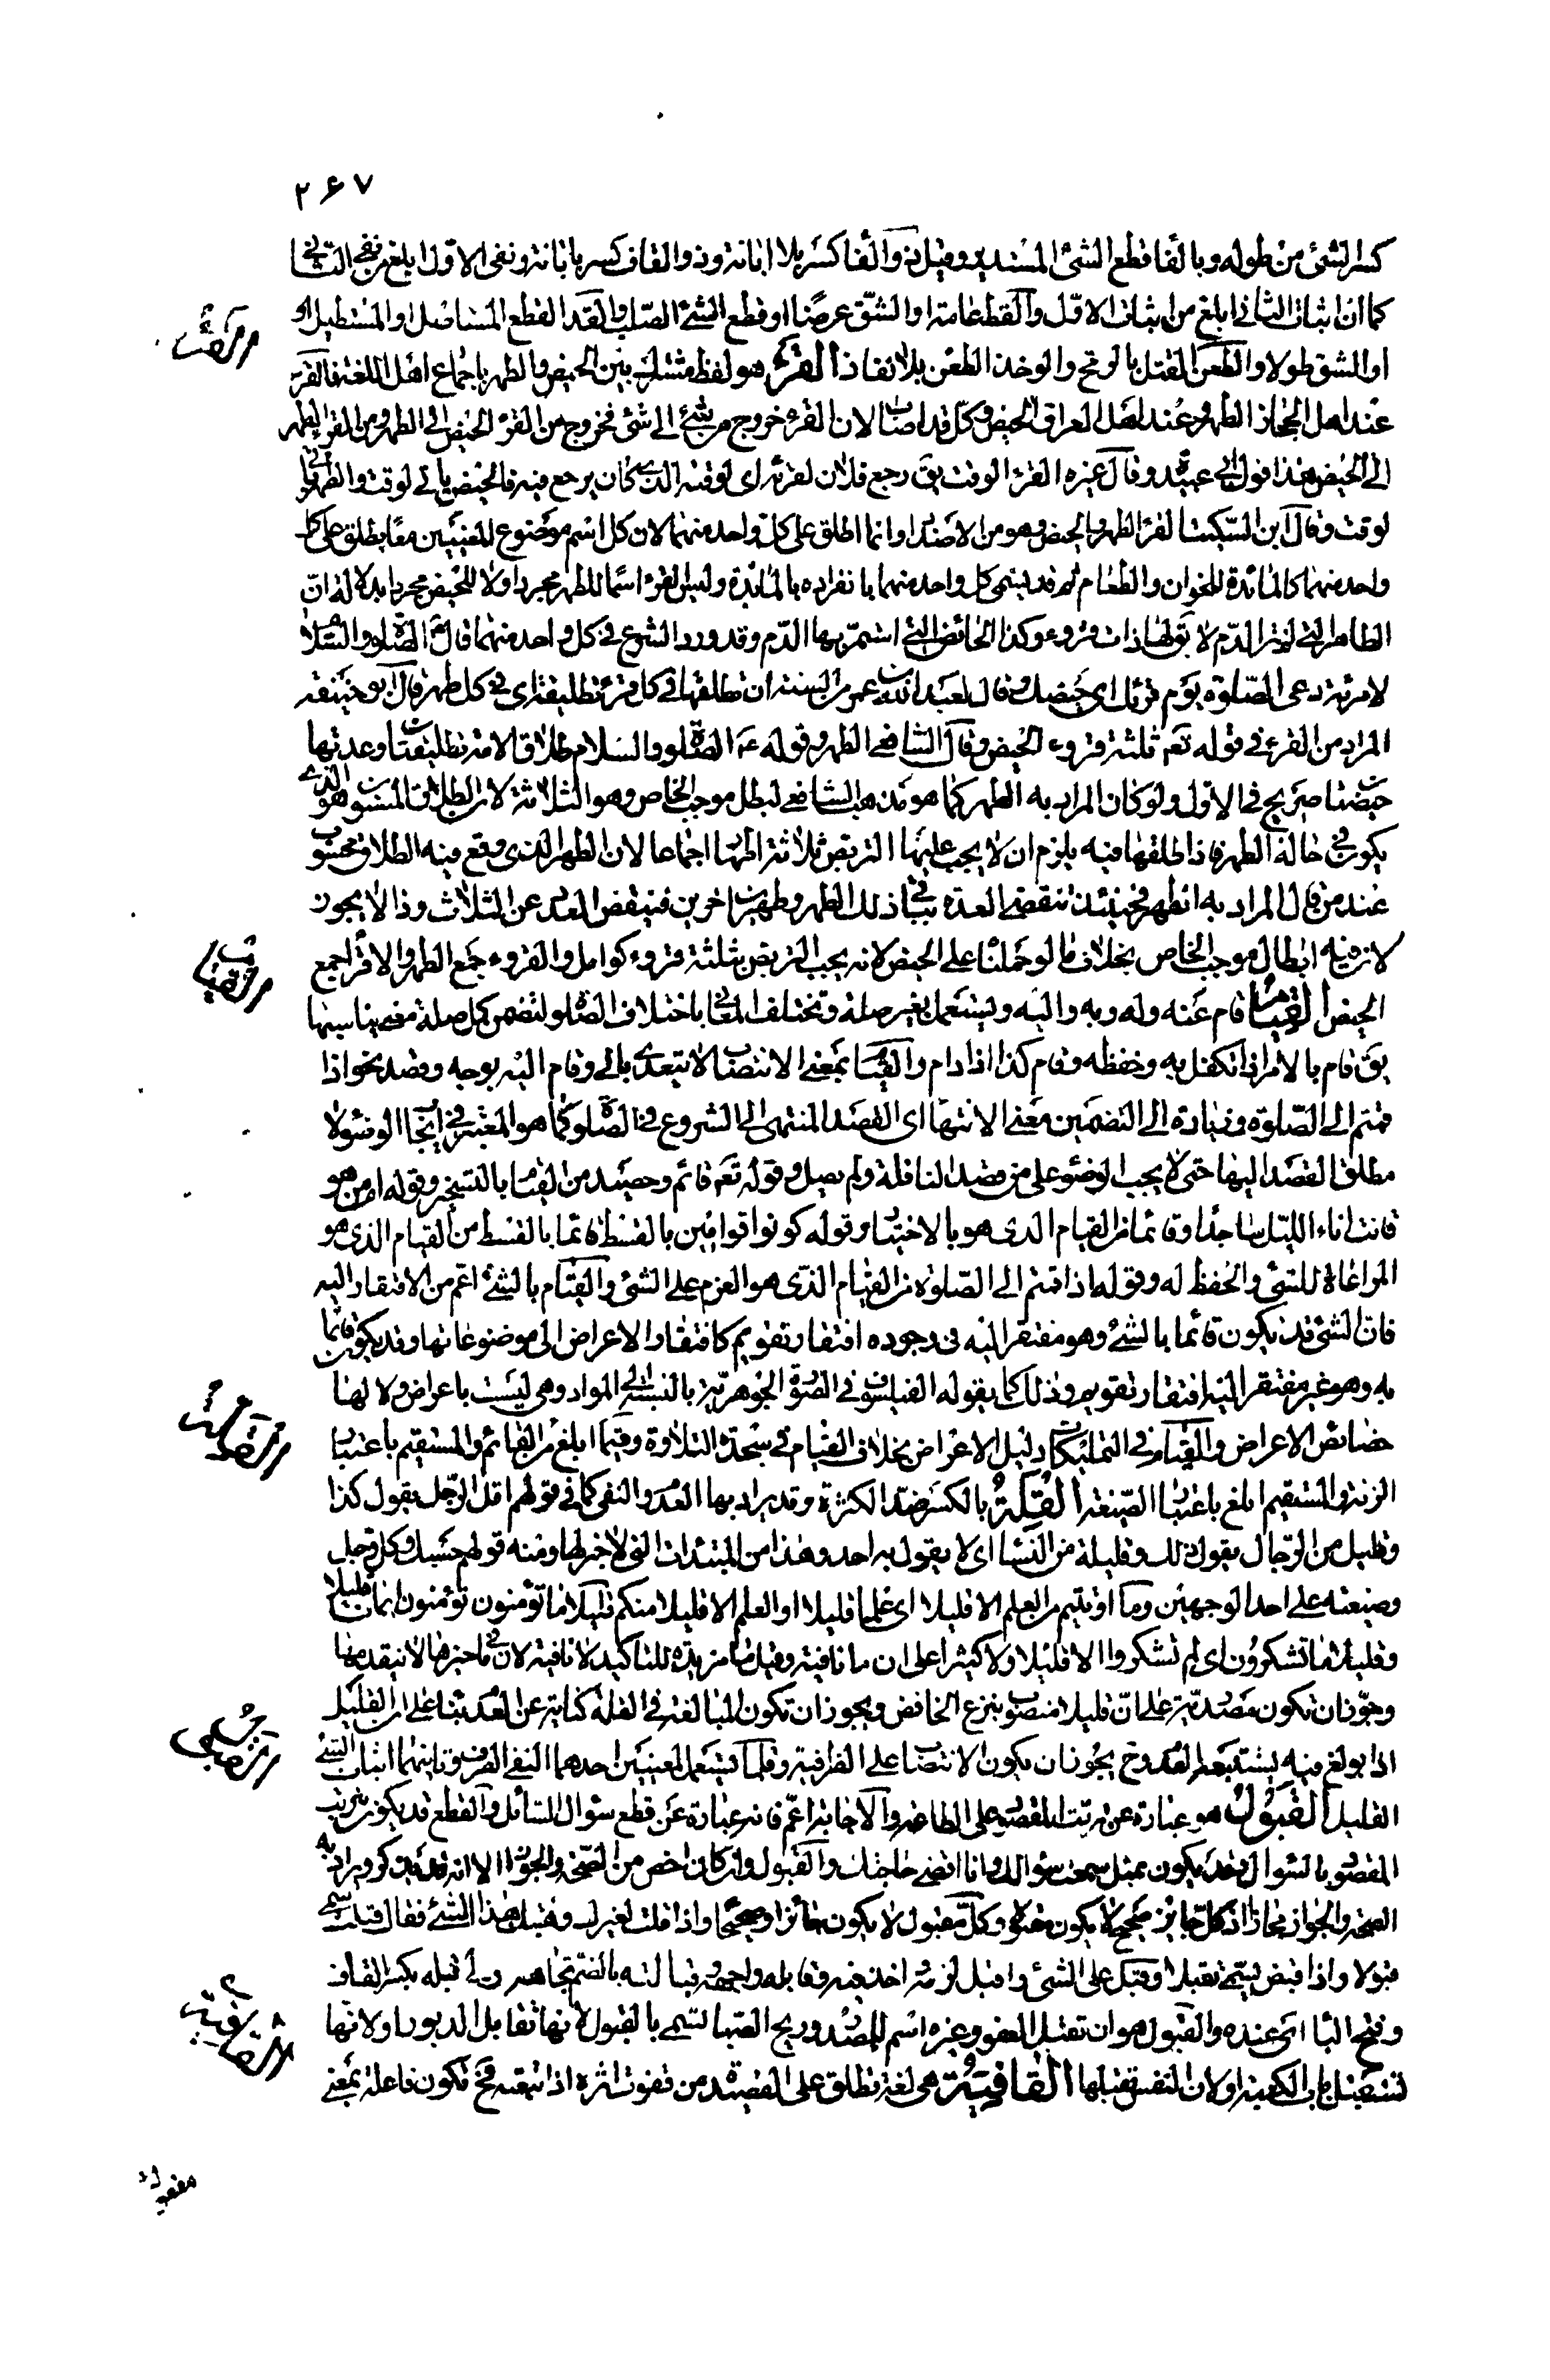 ٢۶٧
كسر الشئ من طوله وبالفا قطع الشئ المستدير وقيل ذو الفا كسر بلا ابانة وذو القاف كسر بابانة ونفى الاول ابلغ من نفى الثانى
كما ان اثبات الثانى ابلغ من اثبات الاول والقط عامة او الشق عرضا او قطع الشئ الصلب والقد القطع المستاصل او المستطيل او
او الشق طولا والطعن القتل بالرمح والوخذ الطعن بلا نفاذ القرء هو لفظ مشترك بين الحيض والطهر باجماع اهل اللغة فالقرء
القرء
عند اهل الحجاز الطهر وعند اهل العراق الحيض وكل قد اصاب لان القرء خروج من شئ الى شئ فخروج من القرء الحيض الى الطهر ومن القرء الطهر
الى الحيض هذا قول ابى عبيد وقال غيره القرء الوقت يق رجع فلان لقرئه اى لوقته الذى كان يرجع فيه فالحيض ياتى لوقت والطهر ياتى
لوقت وقال ابن السكيت القرء الطهر والحيض وهو من الاضداد وانما اطلق على كل واحد منهما لان كل اسم موضوع للمعنيين معا يطلق على كل
واحد منهما كالمائدة للخوان والطعام ثم قد يسمى كل واحد منهما بانفراده بالمائدة وليس القرء اسما للطهر مجردا ولا للحيض مجردا بدلالة ان
الطاهر التى لم تر الدم لا يق لها ذات قروء وكذا الحائض التى استمر بها الدم وقد ورد الشرع فى كل واحد منهما قال عم الصلوة والسلام
لامرئة دعى الصلوة يوم قرئك اى حيضك وقال لعبد الله بن عمر من السنة ان تطلقها فى كل قرء تطليقة اى فى كل طهر قال ابو حنيفة
المراد من القرء فى قوله تعم ثلثة قروء الحيض وقال الشافعى الطهر وقوله عم الصلوة والسلام طلاق الامة تطليقتان وعدتها
حيضتان صريح فى الاول ولو كان المراد به الطهر كما هو مذهب الشافعى لبطل موجب الخاص وهو الثلاثة لان الطلاق المسنون هو الذى
يكون فى حالة الطهر فاذا طلقها فيه يلزم ان لا يجب عليها التربص ثلاثة اطهار اجماعا لان الطهر الذى وقع فيه الطلاق محسوب
عند من قال المراد به الطهر فحينئذ تنقضى العدة بباقى ذلك الطهر وطهرين اخرين فينقض العدد عن الثلاث وذا لا يجوز
لانه فيه ابطال موجب الخاص بخلاف ما لو حملنا على الحيض لانه يجب التربص بثلثة قروء كوامل والقروء جمع الطهر والاقراء جمع
الحيض القيام قام عنه وله وبه واليه ويستعمل بغير صلة وتختلف المعانى باختلاف الصلو لتضمن كل صلة معنى يناسبها
القيام
يق قام بالامر اذا تكفل به وحفظه وقام كذا اذا دام والقيام بمعنى الانتصاب لا يتعدى بالى وقام اليه توجه وقصد نحو اذا
قمتم الى الصلوة وزيادة الى التضمين معنى الانتهاء اى القصد المنتهى الى الشروع فى الصلوة كما هو المعتبر فى ايجاب الوضوء لا
مطلق القصد اليها حتى لا يجب الوضوء على من قصد النافلة ولم يصل وقوله تعم قائم وحصيد من القيام بالتسخير وقوله امن هو
قانت اناء الليل ساجدا وقائما من القيام الذى هو بالاختيار وقوله كونوا قوامين بالقسط قائما بالقسط من القيام الذى هو
المراعاة للشئ والحفظ له وقوله اذا قمتم الى الصلوة من القيام الذى هو العزم على الشئ والقيام بالشئ اعم من الافتقار اليه
فان الشئ قد يكون قائما بالشئ وهو مفتقر اليه فى وجوده افتقار تقويم كافتقار الاعراض الى موضوعاتها وقد يكون قائما
به وهو غير مفتقر اليه افتقار تقويم وذلك كما يقوله الفيلسوف فى الصورة الجوهرية بالنسبة الى المواد وهى ليست باعراض ولا لها
خصائص الاعراض والقيام فى التمليكات دليل الاعراض بخلاف القيام فى سجدة التلاوة وقيما ابلغ من القائم والمستقيم باعتبار
الزنة والمستقيم ابلغ باعتبار الصيغة القلة بالكسر ضد الكثرة وقد يراد بها العدم والنفى كما فى قولهم اقل الرجل يقول كذا
القلة
وقليل من الرجال يقول ذلك وقليلة من النساء اى لا يقول به احد وهذا من المبتدات التى لا خبر لها ومنه قولهم حسبك وكل رجل
وضيعته على احد الوجهين وما اوتيتم من العلم الا قليلا اى علما قليلا او العلم الا قليلا منكم قليلا ما تؤمنون تؤمنون ايمانا قليلا
وقليلا ما تشكرون اى لم تشكروا الا قليلا ولا كثيرا على ان ما نافية وقيل ما مزيدة للتاكيد لا نافية لان ما فى حيزها لا يتقدمها
وجوز ان تكون مصدرية على ان قليلا منصوب بنزع الخافض ويجوز ان تكون المبالغة فى القلة كناية عن العدم بناء على ان القليل
اذا بولغ فيه يستتبعه العدم وح يجوز ان يكون الانتصاب على الظرفية وقلما يستعمل لمعنيين احدهما النفى الصرف وثانيهما اثبات الشئ
القليل القبول هو عبارة عن ترتب المقصود على الطاعة والاجابة اعم فانه عبارة عن قطع سؤال السائل والقطع قد يكون بترتب
المقصود بالسؤال وقد يكون بمثل سمعت سؤالك وانا اقضى حاجتك والقبول وان كان اخص من الصحة والجواز الا انه قد يذكر ويراد به
الصحة والجواز مجازا اذ كل جائز صحيح لا يكون مقبولا وكل مقبول لا يكون جائزا وصحيحا واذا قلت لغيرك وهبتك هذا الشئ فقال قبلت يسمى
قبولا واذا قبض يسمى تقبلا وقبل على الشئ واقبل لزمه واخذ فيه وقابله واجهه وقبالته بالضم تجاهه ولى قبله بكسر القاف
وفتح البا اى عنده والقبول هو ان تقبل العفو وغيره اسم للمصدر وريح الصبا تسمى بالقبول لانها تقابل الدبور او لانها
تستقبل باب الكعبة او لان النفس تقبلها القافية هى لغة تطلق على القصيدة من قفوت اثره اذا تبعته فح تكون فاعلة بمعنى
القافية